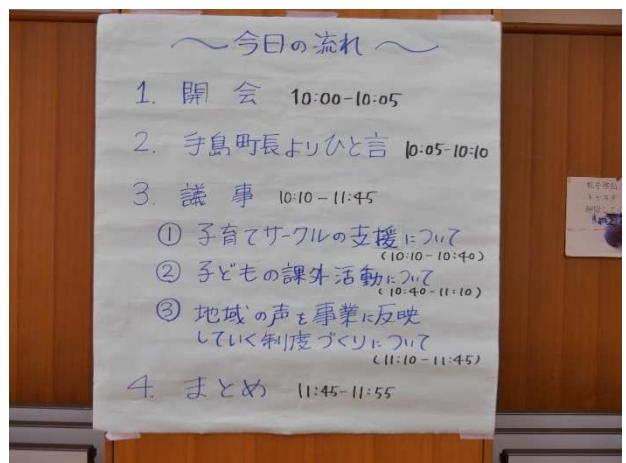 ～今日の流れ～
1. 開会 10:00-10:05
2. 手島町長よりひと言 10:05-10:10
3. 議事 10:10-11:45
① 子育てサークルの支援について
(10:10-10:40)
② 子どもの課外活動について
(10:40-11:10)
③ 地域の声を事業に反映
していく制度づくりについて
(11:10-11:45)
4. まとめ 11:45-11:55